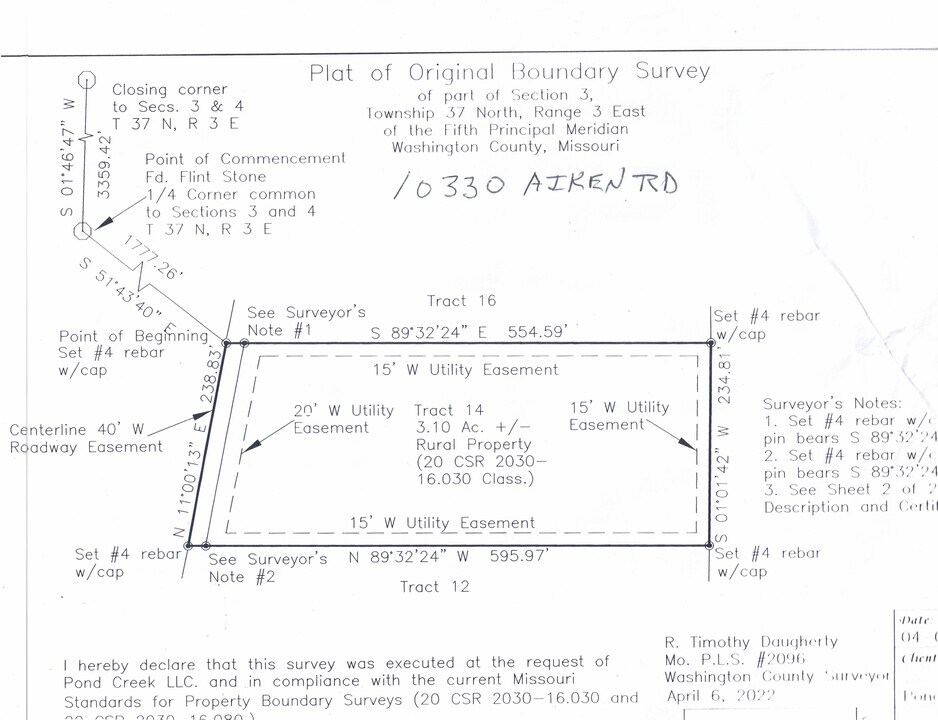 Plat of Original Boundary Survey
of part of Section 3,
Township 37 North, Range 3 East
of the Fifth Principal Meridian
Washington County, Missouri
10330 AIKEN RD
Closing corner
to Secs. 3 & 4
T 37 N, R 3 E
S 01°46'47" W
3359.42'
Point of Commencement
Fd. Flint Stone
1/4 Corner common
to Sections 3 and 4
T 37 N, R 3 E
1777.26'
S 51°43'40" E
Tract 16
See Surveyor's
Note #1
S 89°32'24" E 554.59'
Set #4 rebar
w/cap
Point of Beginning
Set #4 rebar
w/cap
15' W Utility Easement
238.83'
N 11°00'13" E
Centerline 40' W
Roadway Easement
20' W Utility
Easement
Tract 14
3.10 Ac. +/-
Rural Property
(20 CSR 2030-
16.030 Class.)
15' W Utility
Easement
234.81'
S 01°01'42" W
Surveyor's Notes:
1. Set #4 rebar
pin bears S 89°32'24
2. Set #4 rebar
pin bears S 89°32'24
3. See Sheet 2 of 2
Description and
15' W Utility Easement
Set #4 rebar
w/cap
See Surveyor's
Note #2
N 89°32'24" W 595.97'
Set #4 rebar
w/cap
Tract 12
I hereby declare that this survey was executed at the request of
Pond Creek LLC. and in compliance with the current Missouri
Standards for Property Boundary Surveys (20 CSR 2030-16.030 and
20 CSR 2030-16.080.)
R. Timothy Daugherty
Mo. P.L.S. #2096
Washington County Surveyor
April 6, 2022
Date:
04
Client